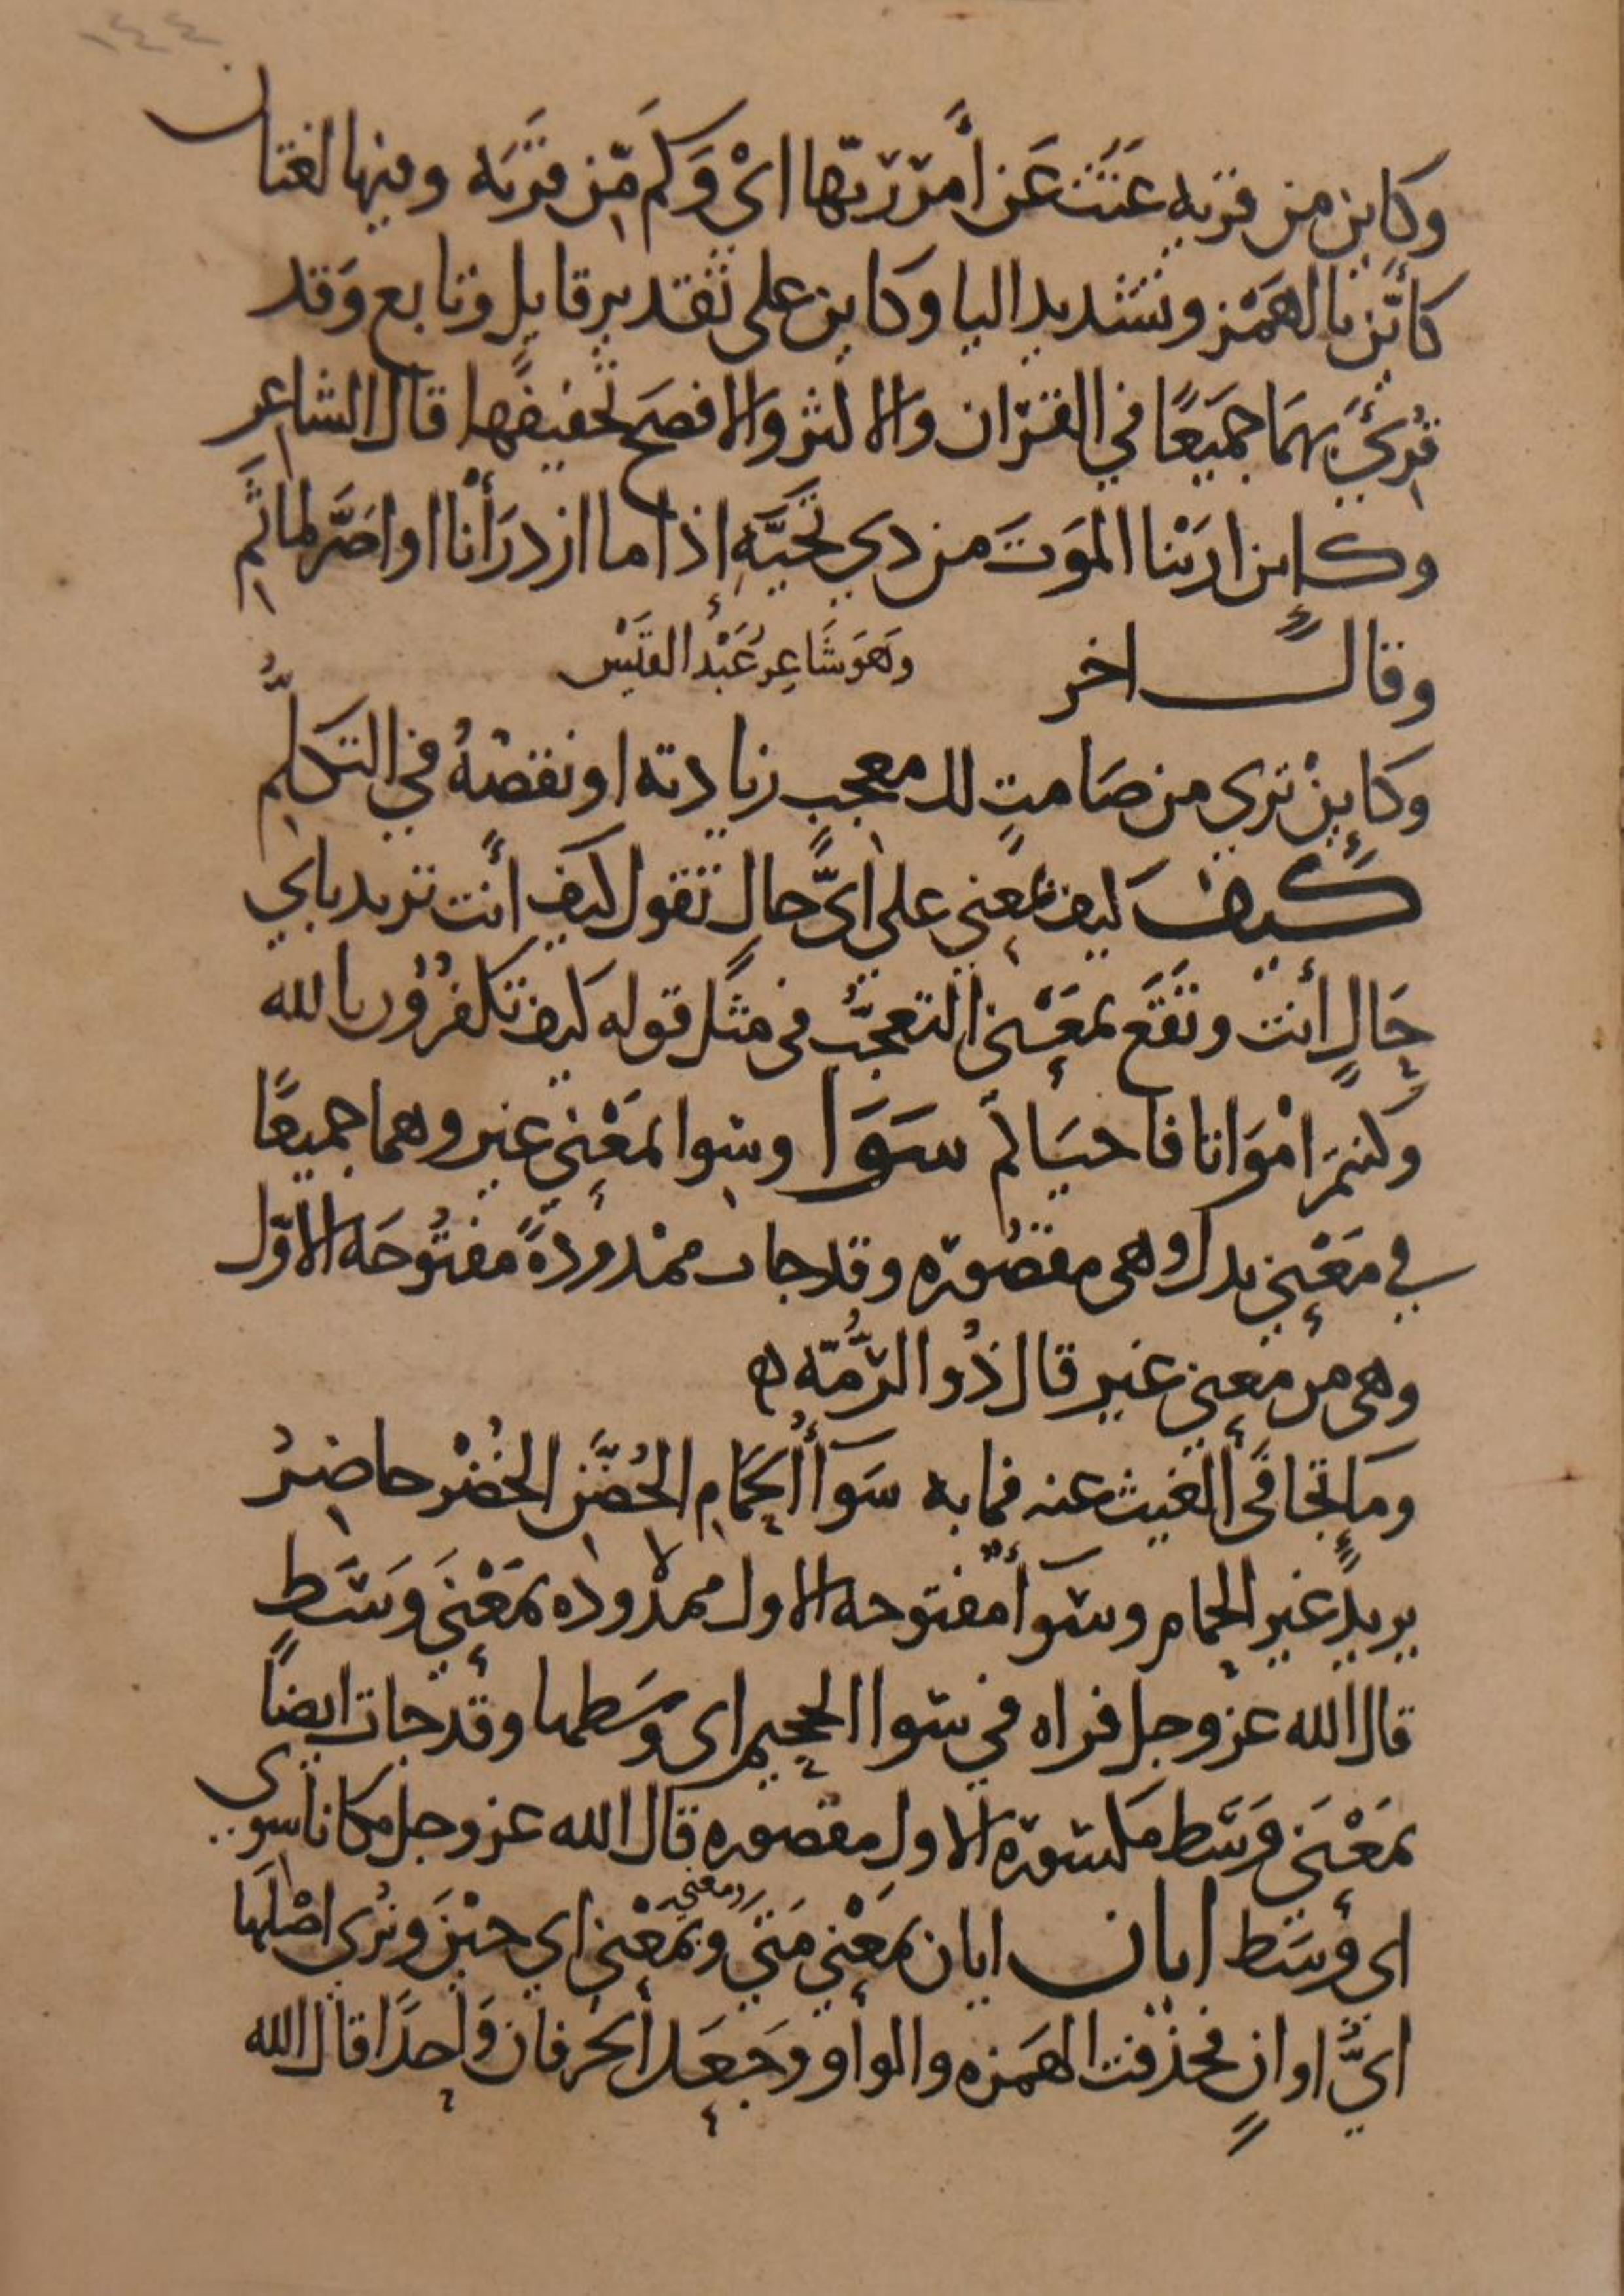 ١٤٤
وكاين من قرية عَتَت عَن أَمر ربّها اىْ وَكَم مّن قَريَه وفيها لغتان
كأيّن بالهَمْز وتشديد اليا وكاين على تقدير قايلٍ وبايعٍ وَقد
قُرِئَ بِهمَا جَميعًا في القرآن والاكثر والافصَح تخفيفها قال الشاعر
وكاين ارَيْنا الموَتَ من ذي تحَيَّهٍ إذا ما ازدرَأنا او اصَرَّ لماثَمِ
وقال اخر وَهوَ شَاعِر عَبْد القَيْس
وكاينْ تري من صَامتٍ لك معجبٍ زيادته او نقصْهُ في التكلُّمِ
كيفَ كيف بمعني علي ايّ حالٍ تقول كيف أنت تريد باي
حَالٍ أنت وتَقَع بمَعْني التعجُّب في مثل قوله كيف تكفرُوُن بالله
وَكنتمْ امْوَاتا فاحيَاكم سَوَا وسوا بمَعْنِي غير وهما جميعًا
في مَعْنِي بدل وهى مقصُورَه وقد جات ممْدودةً مفتُوحَه الاوّل
وهى من معنِي غير قال ذُو الرّمُّه ه
ومَا تجافَى الغيث عنه فما به سَوَآأ الحَمَامِ الحُضَّنِ الخُضْرِ حاضِرُ
يريد غير الحمام وسَوآأ مفتوحه الاول ممدْوده بمَعْنِي وَسَطٍ
قال الله عز وجل فراه في سَوا الجحيم اى وسَطها وقد جات ايضاً
بمَعْنِي وَسَط مكسُورَه الاولِ مقصوره قال الله عز وجل مكانا سوى
اى وسَط ايان ايان بمَعْنِي مَتَي وبمَعْنى اي حيْن وتُرى اصْلها
ايّ اوانٍ فحذفت الهَمزه والواو وجَعَل الحَرفان وَاحِدًا قال الله